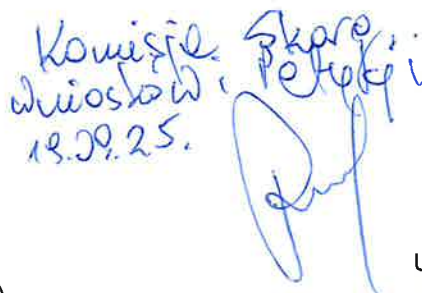 Komisja Skarg,
wniosków i Petycji
19.09.25.